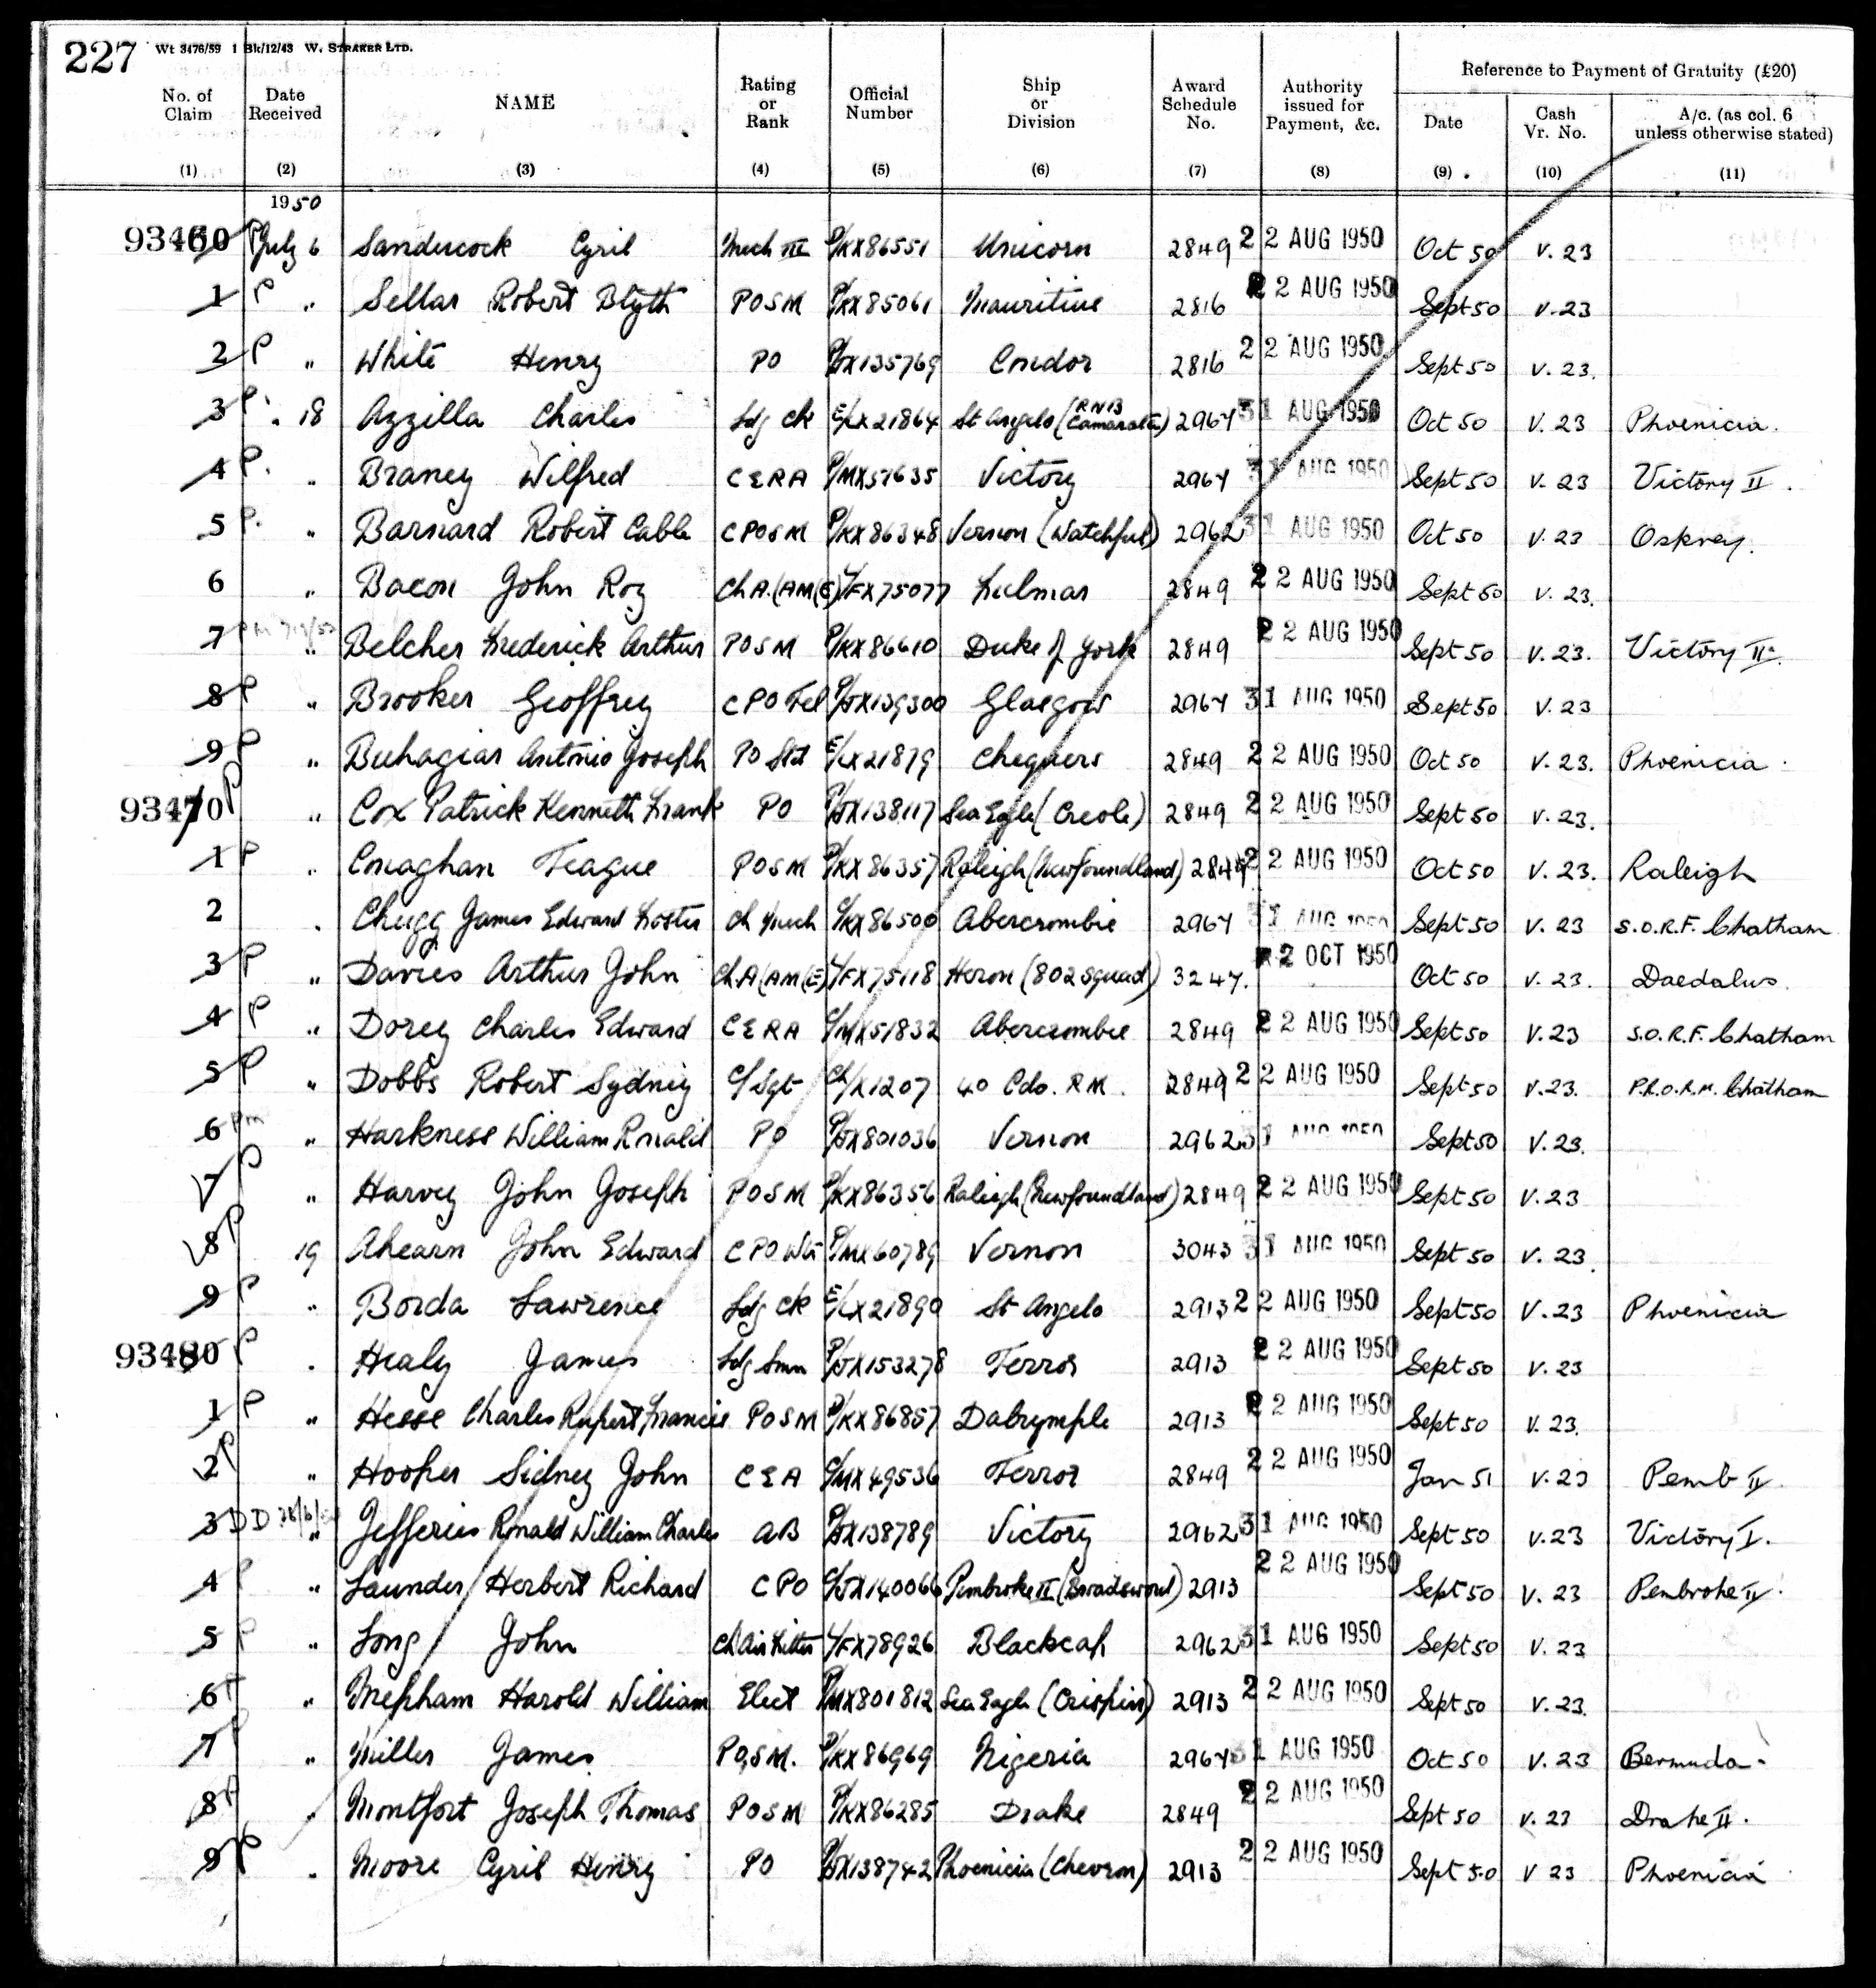 227 Wt 3476/59 1 Bk/12/43 W. STRAKER LTD.
Reference to Payment of Gratuity (£20)
No. of Claim Date Received NAME Rating or Rank Official Number Ship or Division Award Schedule No. Authority issued for Payment, &c. Date Cash Vr. No. A/c. (as col. 6 unless otherwise stated)
(1) (2) (3) (4) (5) (6) (7) (8) (9) (10) (11)
1950
93460 P July 6 Sandercock Cyril Mech III P/KX86551 Unicorn 2849 22 AUG 1950 Oct 50 V. 23
1 P " Sellar Robert Blyth POSM P/KX85061 Mauritius 2816 22 AUG 1950 Sept 50 V. 23
2 P " White Henry PO P/JX135769 Condor 2816 22 AUG 1950 Sept 50 V. 23.
3 P. " 18 Azzilla Charles Ldg Ck E/LX21864 St Angelo (RNB Camarata) 2967 31 AUG 1950 Oct 50 V. 23 Phoenicia.
4 P. " Braney Wilfred CERA P/MX57635 Victory 2967 31 AUG 1950 Sept 50 V. 23 Victory II.
5 P. " Barnard Robert Cable CPOSM P/KX86348 Vernon (Watchful) 2962 31 AUG 1950 Oct 50 V. 23 Osprey.
6 " Bacon John Roy Ch A.(AM(E) L/FX75077 Fulmar 2849 22 AUG 1950 Sept 50 V. 23.
7 " Belcher Frederick Arthur POSM P/KX86610 Duke of York 2849 22 AUG 1950 Sept 50 V. 23. Victory II.
8 P " Brooker Geoffrey CPO Tel P/JX139300 Glasgow 2967 31 AUG 1950 Sept 50 V. 23
9 P " Buhagiar Antonio Joseph PO Std E/LX21879 Chequers 2849 22 AUG 1950 Oct 50 V. 23. Phoenicia.
93470 P " Cox Patrick Kenneth Frank PO P/JX138117 Sea Eagle (Creole) 2849 22 AUG 1950 Sept 50 V. 23.
1 P " Conaghan Teague POSM P/KX86357 Raleigh (Newfoundland) 2849 22 AUG 1950 Oct 50 V. 23. Raleigh
2 " Chugg James Edward Foster Ch Mech C/KX86500 Abercrombie 2967 31 AUG 1950 Sept 50 V. 23 S.O.R.F. Chatham
3 P " Davies Arthur John Ch.A (AM(E) L/FX75118 Heron (802 Squad) 3247. 2 OCT 1950 Oct 50 V. 23. Daedalus.
4 P " Dorey Charles Edward CERA C/MX51832 Abercrombie 2849 22 AUG 1950 Sept 50 V. 23 S.O.R.F. Chatham
5 P " Dobbs Robert Sydney C/Sgt Ch/X1207 40 Cdo. R.M. 2849 22 AUG 1950 Sept 50 V. 23. P.R.O.R.M. Chatham
6 PM " Harkness William Ronald PO P/JX801036 Vernon 2962 31 AUG 1950 Sept 50 V. 23.
7 P " Harvey John Joseph POSM P/KX86356 Raleigh (Newfoundland) 2849 22 AUG 1950 Sept 50 V. 23
8 P 19 Ahearn John Edward CPO Wtr P/MX60789 Vernon 3043 31 AUG 1950 Sept 50 V. 23.
9 P " Borda Lawrence Ldg Ck E/LX21890 St Angelo 2913 22 AUG 1950 Sept 50 V. 23 Phoenicia
93480 P " Healy James Ldg Smn P/JX153278 Terror 2913 22 AUG 1950 Sept 50 V. 23
1 P " Hesse Charles Rupert Francis POSM P/KX86857 Dalrymple 2913 22 AUG 1950 Sept 50 V. 23.
2 P " Hooper Sidney John CEA C/MX49536 Terror 2849 22 AUG 1950 Jan 51 V. 23 Pemb II
3 DD " Jefferies Ronald William Charles AB P/JX138789 Victory 2962 31 AUG 1950 Sept 50 V. 23 Victory I.
4 P " Launder Herbert Richard CPO C/JX140066 Pembroke II (Broadsword) 2913 22 AUG 1950 Sept 50 V. 23 Pembroke II.
5 P " Long John Ch Air Fitter L/FX78926 Blackcap 2962 31 AUG 1950 Sept 50 V. 23
6 P " Mepham Harold William Elect P/MX801812 Sea Eagle (Crispin) 2913 22 AUG 1950 Sept 50 V. 23.
7 P " Miller James POSM. P/KX86969 Nigeria 2967 31 AUG 1950 Oct 50 V. 23 Bermuda.
8 P " Montfort Joseph Thomas POSM P/KX86285 Drake 2849 22 AUG 1950 Sept 50 V. 23 Drake II.
9 P " Moore Cyril Henry PO P/JX138742 Phoenicia (Chevron) 2913 22 AUG 1950 Sept 50 V 23 Phoenicia